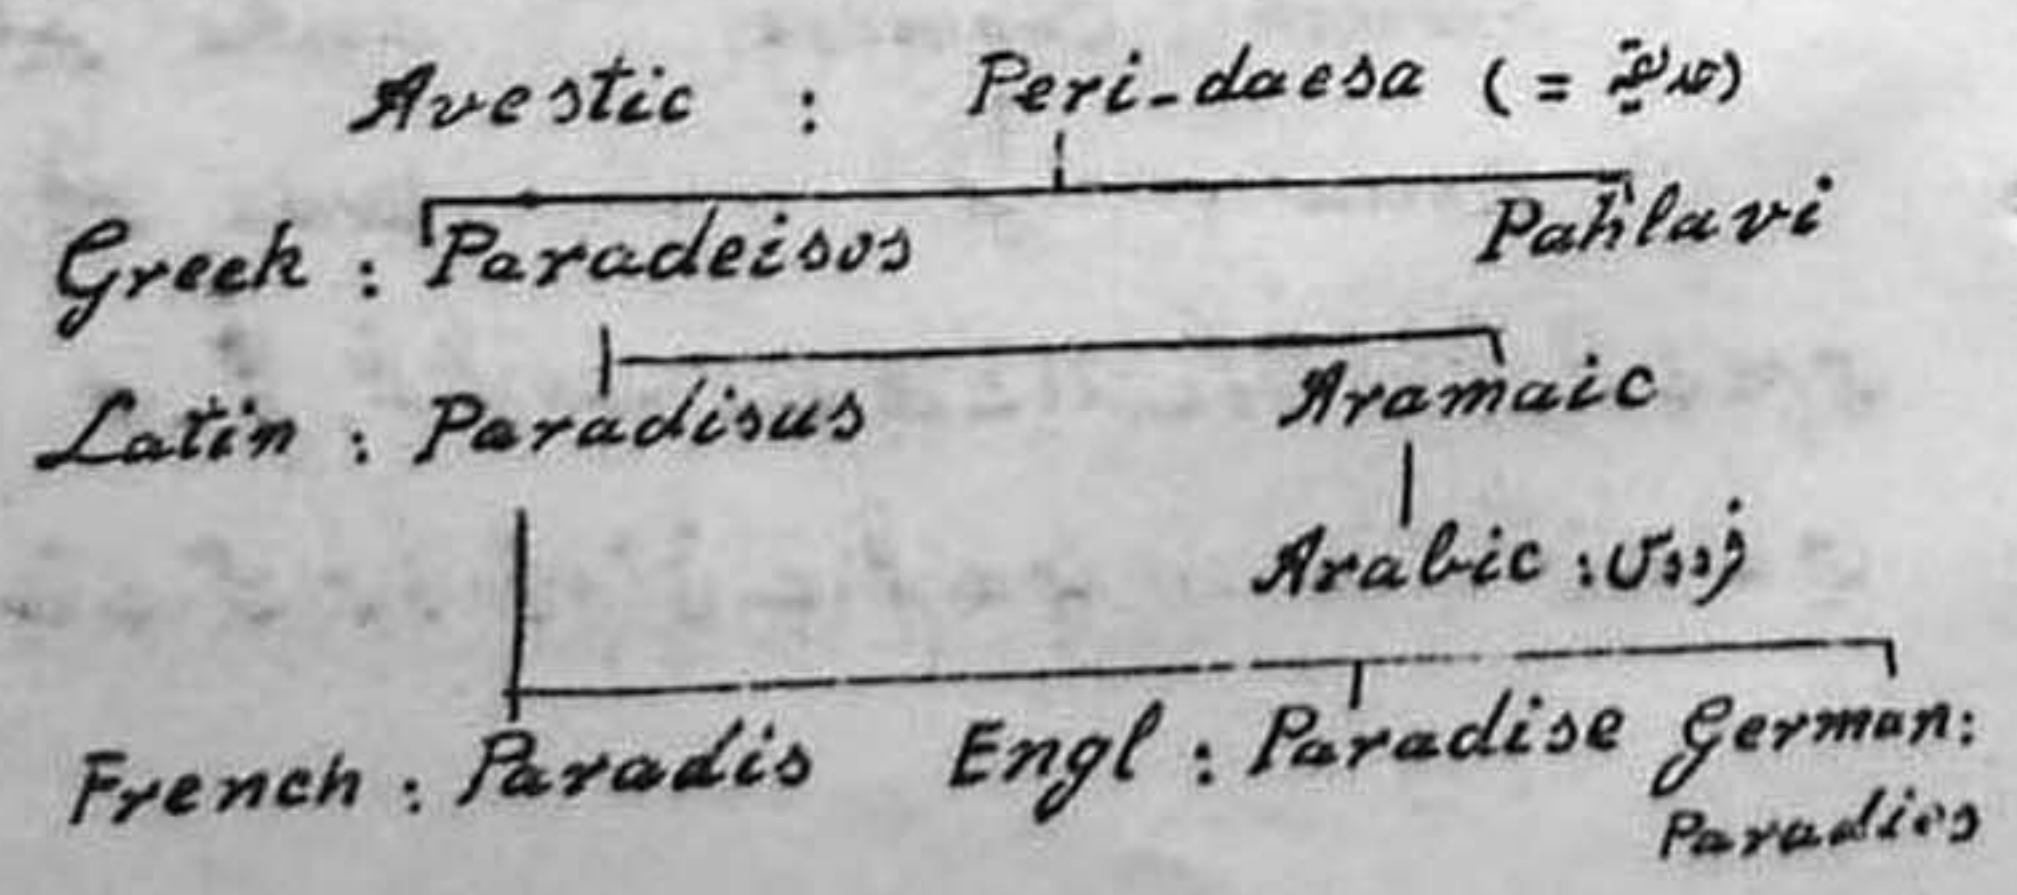 Avestic : Peri-daesa ( = )
Greek : Paradeisos Pahlavi
Latin : Paradisus Aramaic
Arabic : فردوس
French : Paradis Engl : Paradise German:
Paradies